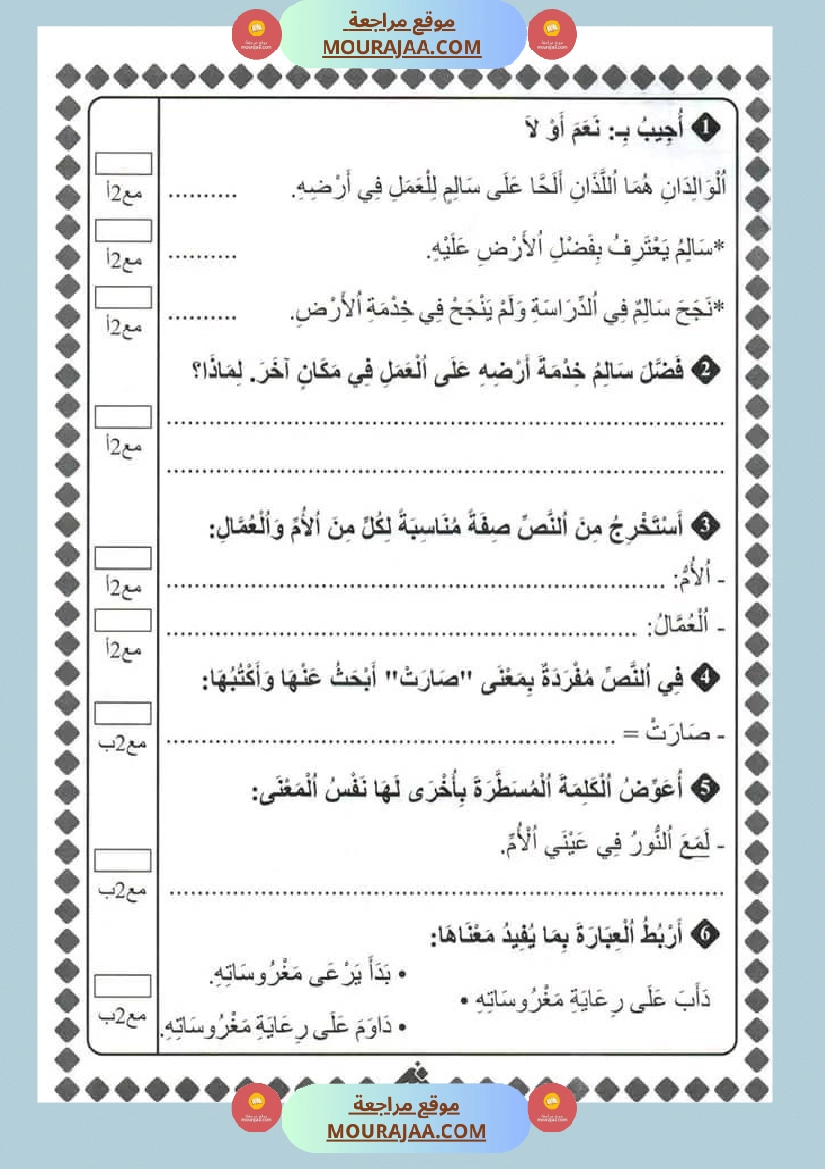 موقع مراجعة
MOURAJAA.COM
1 أُجِيبُ بِـ: نَعَمْ أَوْ لَا
اُلْوَالِدَانِ هُمَا اُللَّذَانِ أَلَحَّا عَلَى سَالِمٍ لِلْعَمَلِ فِي أَرْضِهِ. ..........
مع2أ
*سَالِمُ يَعْتَرِفُ بِفَضْلِ اُلأَرْضِ عَلَيْهِ. ..........
مع2أ
*نَجَحَ سَالِمٌ فِي اُلدِّرَاسَةِ وَلَمْ يَنْجَحْ فِي خِدْمَةِ اُلأَرْضِ. ..........
مع2أ
2 فَضَّلَ سَالِمُ خِدْمَةَ أَرْضِهِ عَلَى اُلْعَمَلِ فِي مَكَانٍ آخَرَ. لِمَاذَا؟
مع2أ
3 أَسْتَخْرِجُ مِنَ اُلنَّصِّ صِفَةً مُنَاسِبَةً لِكُلٍّ مِنَ اُلأُمِّ وَاُلْعُمَّالِ:
- اُلأُمُّ: ..........
مع2أ
- اُلْعُمَّالُ: ..........
مع2أ
4 فِي اُلنَّصِّ مُفْرَدَةٌ بِمَعْنَى "صَارَتْ" أَبْحَثُ عَنْهَا وَأَكْتُبُهَا:
- صَارَتْ = ..........
مع2ب
5 أُعَوِّضُ اُلْكَلِمَةَ اُلْمُسَطَّرَةَ بِأُخْرَى لَهَا نَفْسُ اُلْمَعْنَى:
- لَمَعَ اُلنُّورُ فِي عَيْنَي اُلْأُمِّ.
مع2ب
6 أَرْبُطُ اُلْعِبَارَةَ بِمَا يُفِيدُ مَعْنَاهَا:
• بَدَأَ يَرْعَى مَغْرُوسَاتِهِ.
دَأَبَ عَلَى رِعَايَةِ مَغْرُوسَاتِهِ •
• دَاوَمَ عَلَى رِعَايَةِ مَغْرُوسَاتِهِ.
مع2ب
موقع مراجعة
MOURAJAA.COM